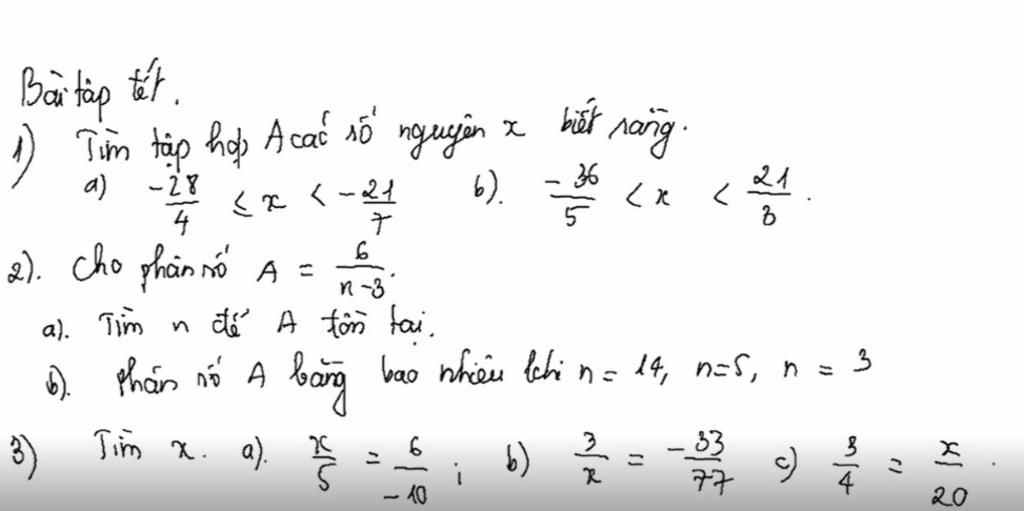 Bài tập tết.
1) Tìm tập hợp A các số nguyên x biết rằng.
a) -28/4 ≤ x < -21/7 b). -36/5 < x < 21/3.
2). Cho phân số A = 6/n-3.
a). Tìm n để A tồn tại.
b). phân số A bằng bao nhiêu khi n = 14, n=5, n = 3
3) Tìm x. a). x/5 = 6/-10; b) 3/x = -33/77 c) 3/4 = x/20.